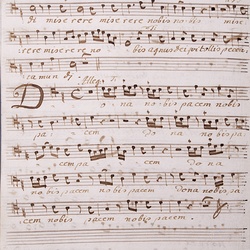 Mi serere miserere nobis no bis mi
serere miserere no bis agnus dei qui tollis pecca
ta mun di Alleg:
Do na nobis pacem nobis
pa cem do na
cem pa cem do na
no bis pacem nobis pacem dona nobis pa
cem nobis pacem nobis pacem.